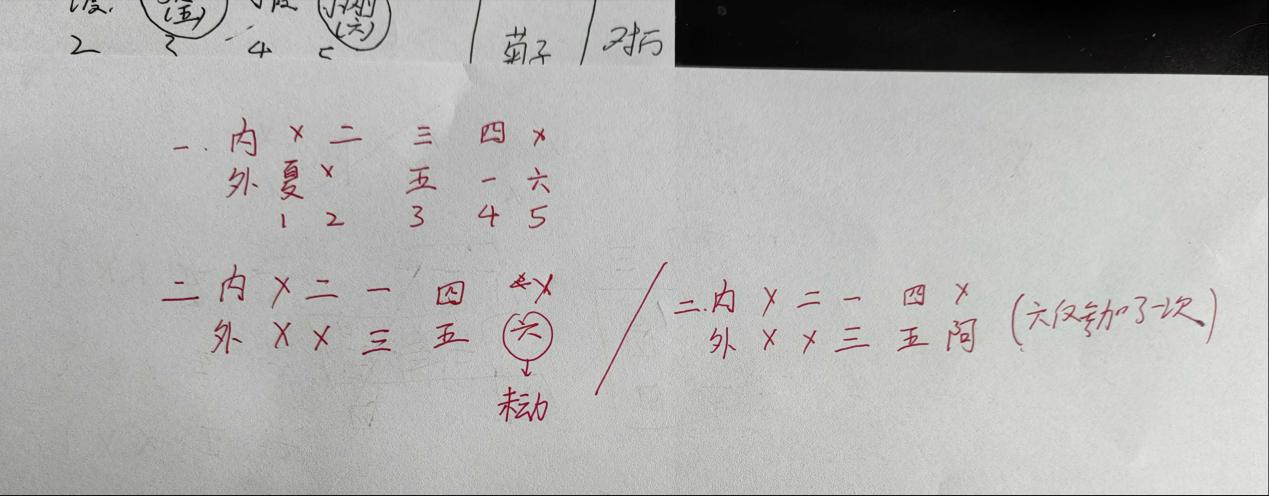 (五) (六)
2 3 4 5 菊子 对后
一. 内 × 二 三 四 ×
外 夏 × 五 一 六
1 2 3 4 5
二 内 × 二 一 四 ×
外 × × 三 五 六
未动
二. 内 × 二 一 四 ×
外 × × 三 五 阿 (六仅参加了一次)